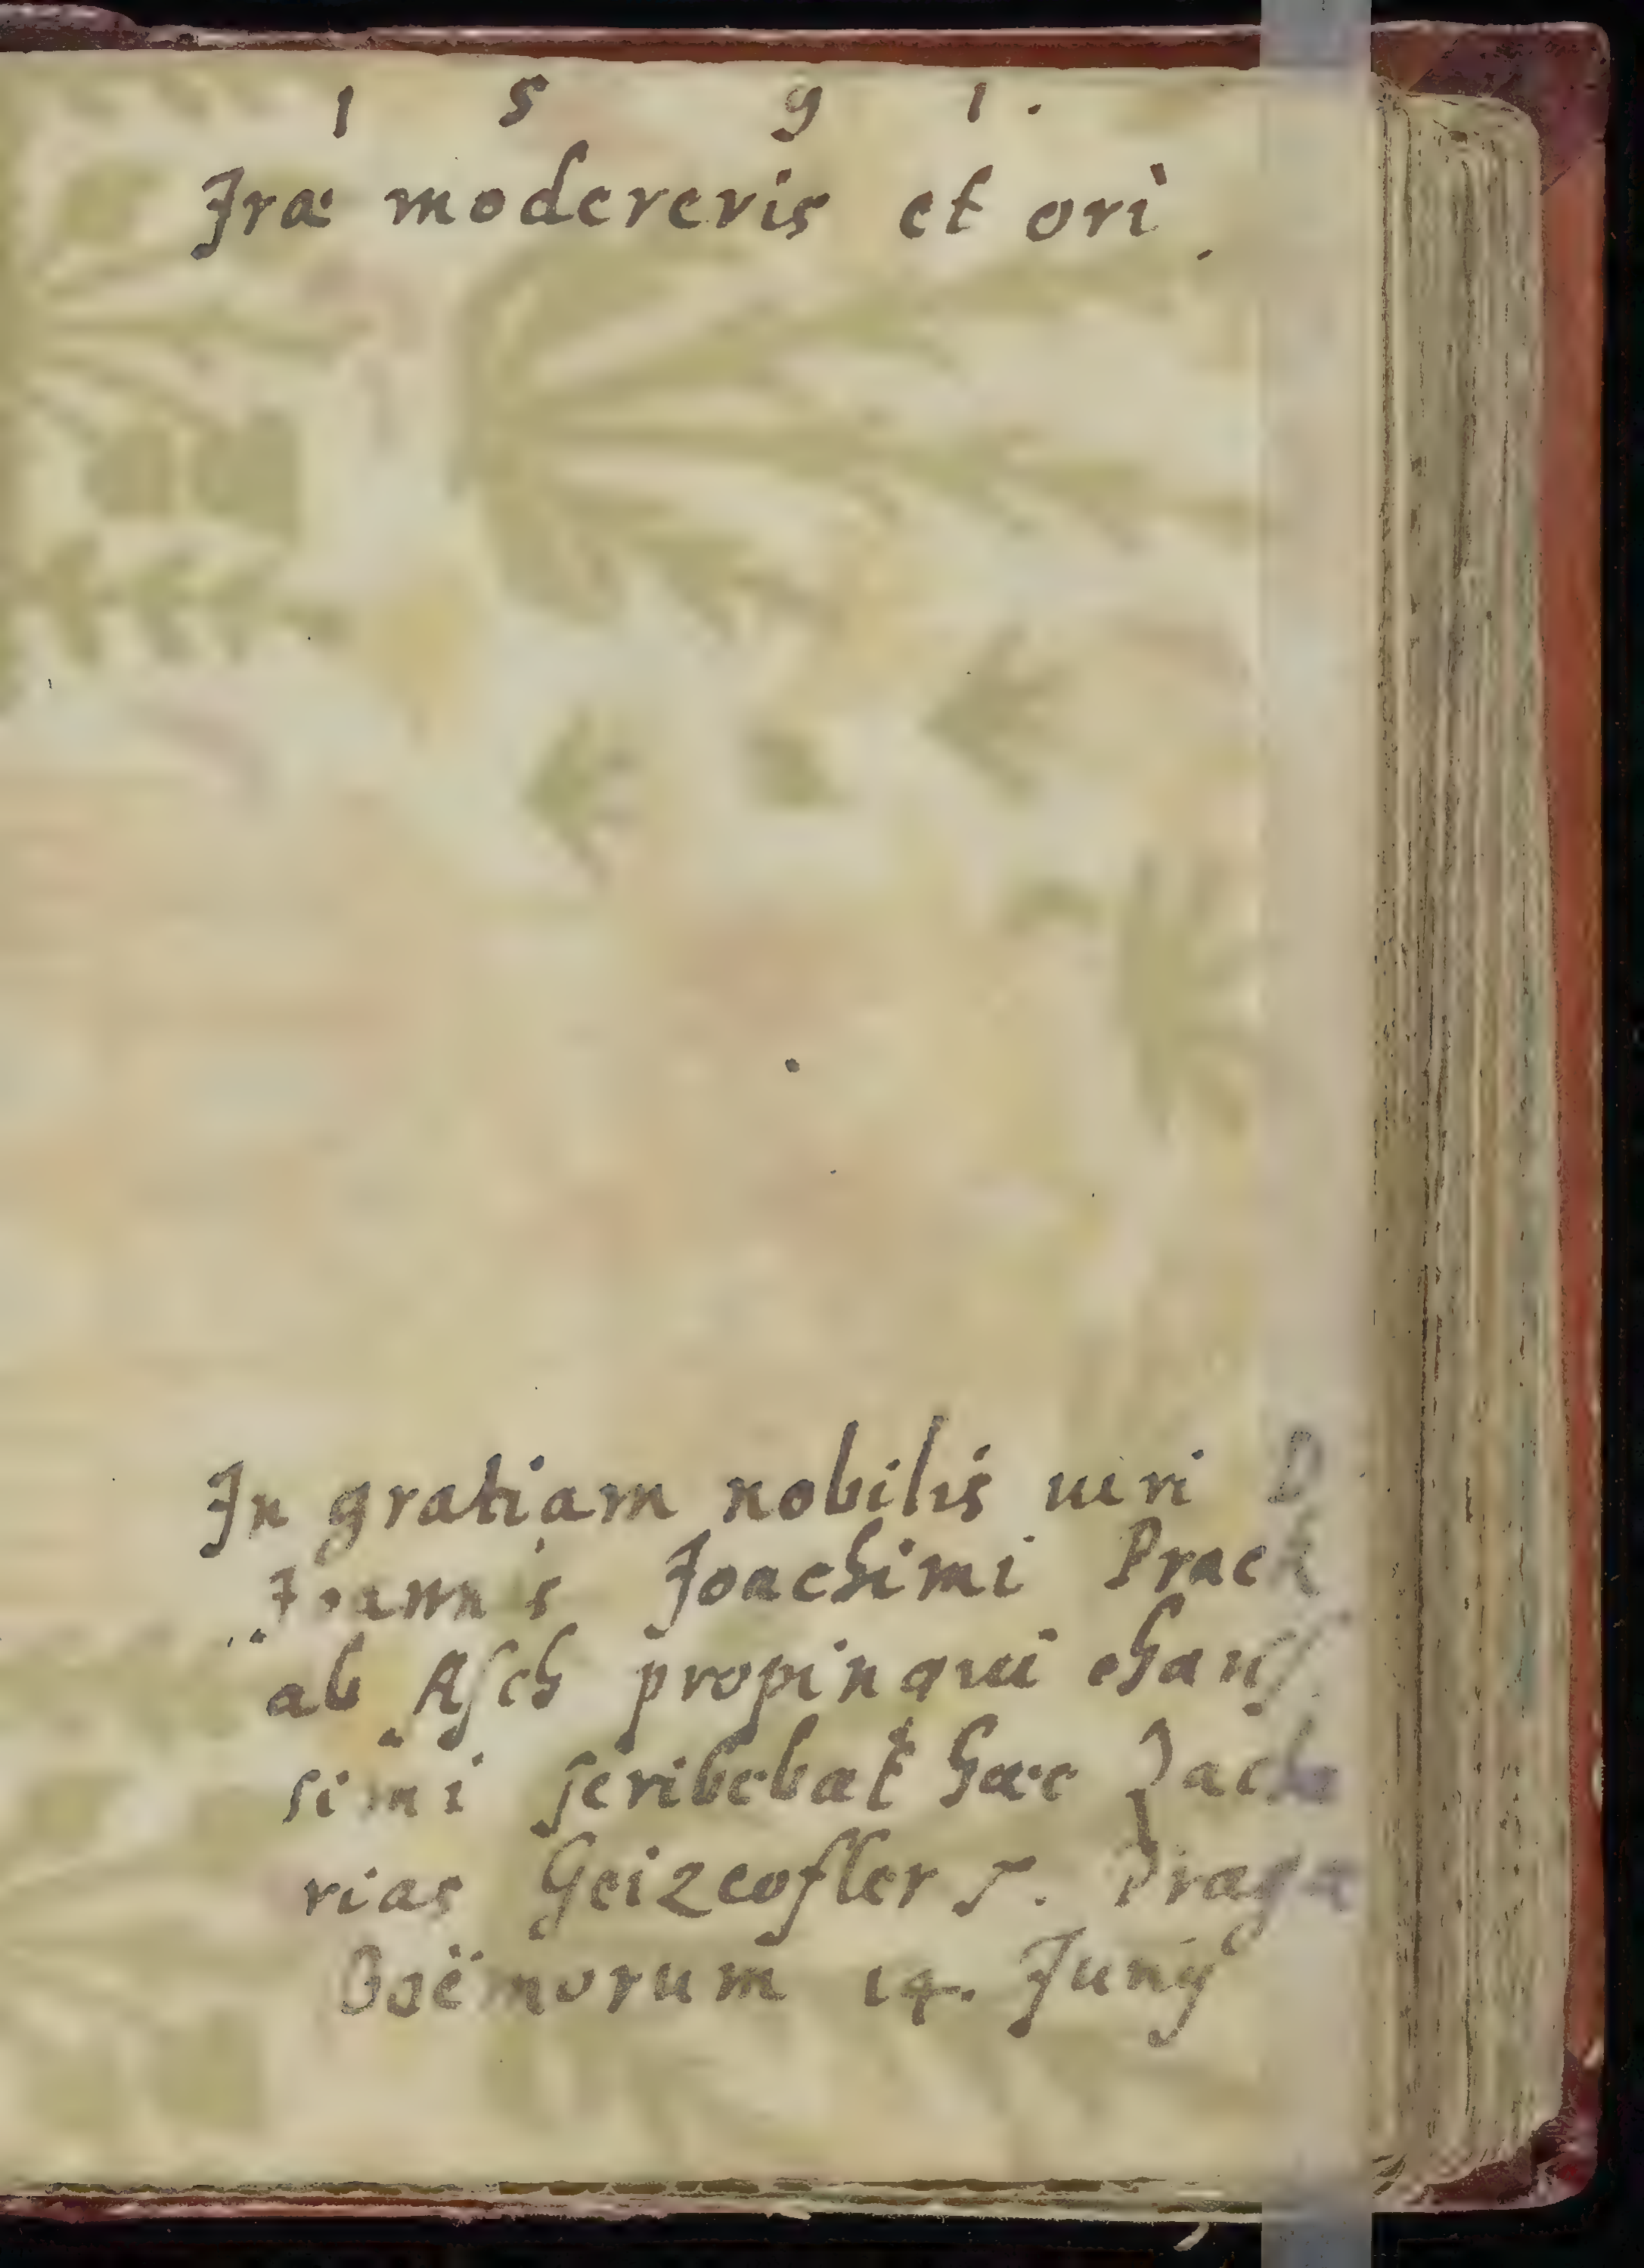 1 5 9 1.
Iræ modereris et ori.
In gratiam nobilis uiri D
Ioannis Joachimi Prack
ab Asch propinqui chariſ
simi ſcribebat hæc Zacha
rias Geizcofler ſ. Pragæ
Boëmorum 14. Junÿ